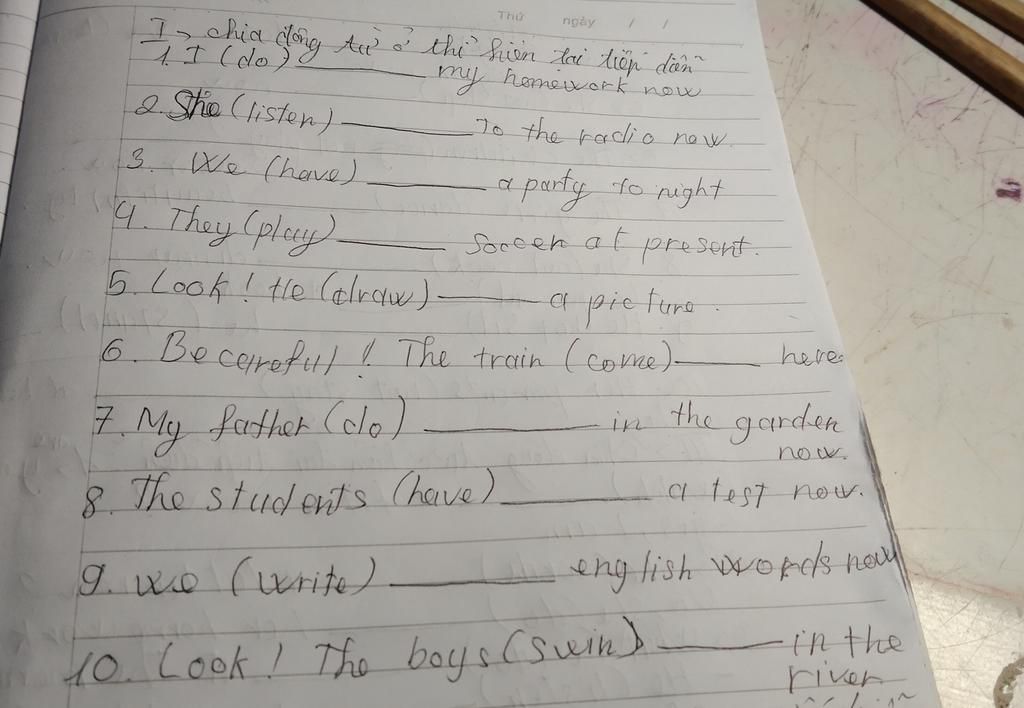 Thứ ngày / /
I, chia động từ ở thì hiện tại tiếp diễn
1. I (do) ________ my homework now
2. She (listen) ________ To the radio now.
3. We (have) ________ a party to night
4. They (play) ________ soccer at present.
5. Look! He (draw) ________ a picture.
6. Be careful! The train (come) ________ here.
7. My father (do) ________ in the garden
now.
8. The students (have) ________ a test now.
9. we (write) ________ english words now
10. Look! The boys (swin) ________ in the
river